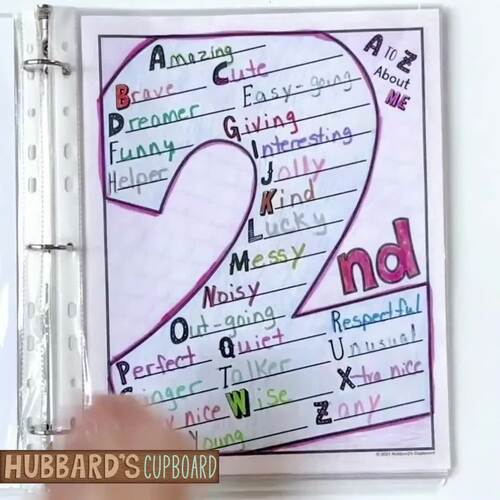 A TO Z
About
ME
Amazing
Brave Cute
Dreamer Easy-going
Funny Giving
Helper Interesting
Jolly
Kind
Lucky
Messy
Noisy
nd
Out-going
Perfect Quiet Respectful
Talker Unusual
nice Wise X-tra nice
Young Zany
© 2021 Hubbard's Cupboard
HUBBARD'S CUPBOARD